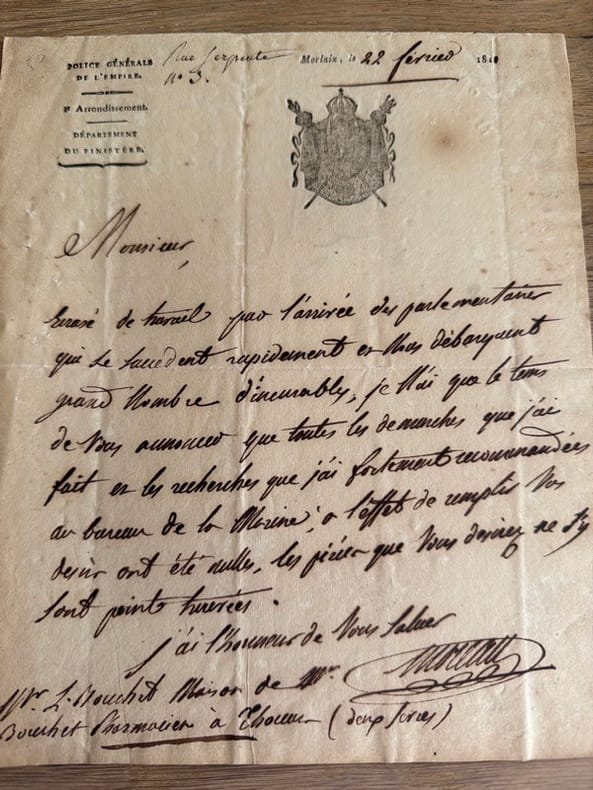 POLICE GÉNÉRALE
DE L'EMPIRE.
Arrondissement.
DÉPARTEMENT
DU FINISTÈRE.
Rue Serpente
N° 3.
Morlaix, le 22 février 181
Monsieur,
Ecrasé de travail par l'arrivée des parlementaires
qui se succedent rapidement et Nous débarquent
grand Nombre d'incurables, je N'ai que le tems
de Vous annoncer que toutes les demarches que j'ai
fait et les recherches que j'ai fortement recommandées
au bureau de la Marine, a l'effet de remplir Vos
desirs ont été nulles, les pièces que Vous desirez ne s'y
sont point trouvées.
j'ai l'honneur de Vous Saluer
Mr. L. Bouchet Maison de Mr.
Bouchet Pharmacien à Thouars (deux Sevres)